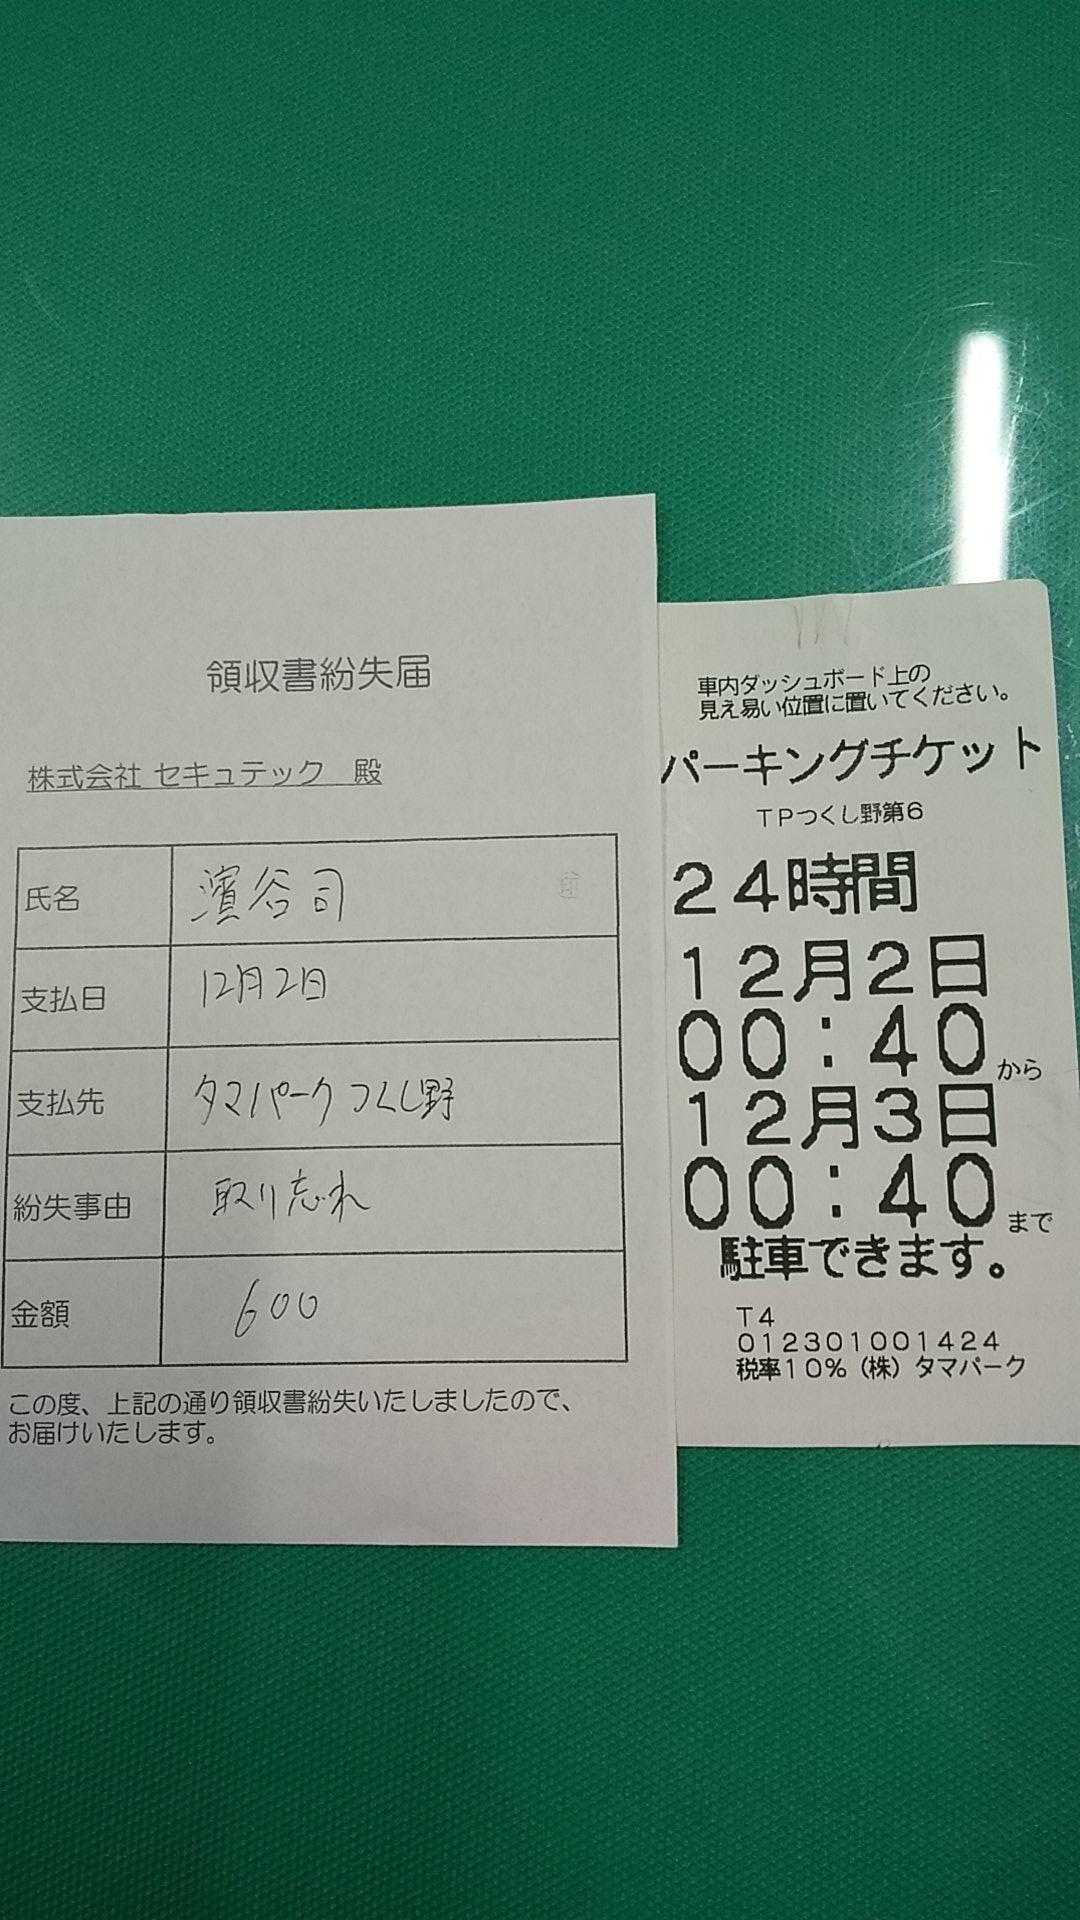 領収書紛失届
株式会社 セキュテック 殿
氏名 濱谷司 印
支払日 12月2日
支払先 タマパークつくし野
紛失事由 取り忘れ
金額 600
この度、上記の通り領収書紛失いたしましたので、
お届けいたします。
車内ダッシュボード上の
見え易い位置に置いてください。
パーキングチケット
TPつくし野第6
24時間
12月2日
00:40から
12月3日
00:40まで
駐車できます。
T4
012301001424
税率10%(株)タマパーク